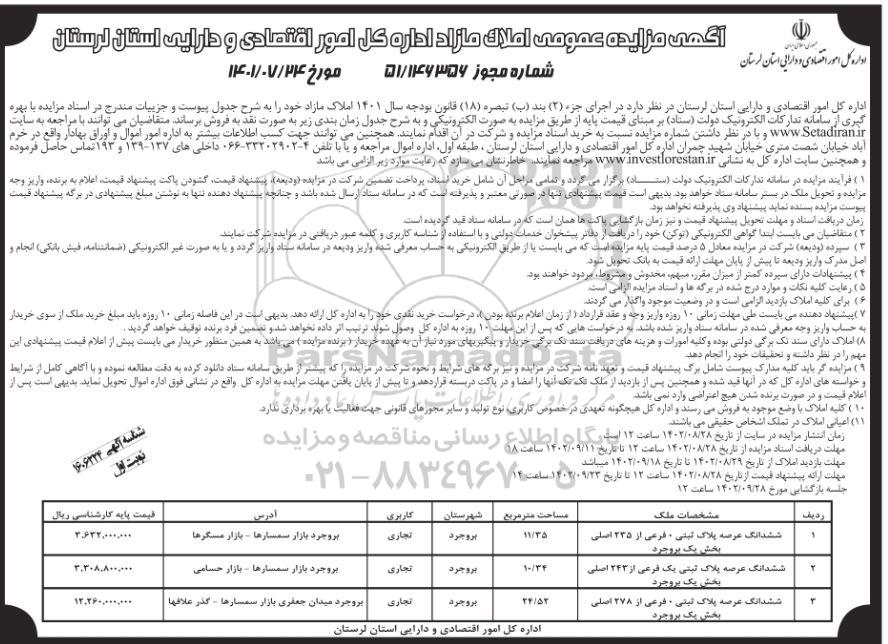 جمهوری اسلامی ایران
اداره کل امور اقتصادی و دارایی استان لرستان
آگهی مزایده عمومی املاک مازاد اداره کل امور اقتصادی و دارایی استان لرستان
شماره مجوز ۵۱/۱۴۶۳۵۶ مورخ ۱۴۰۱/۰۷/۲۴
اداره کل امور اقتصادی و دارایی استان لرستان در نظر دارد در اجرای جزء (۲) بند (ب) تبصره (۱۸) قانون بودجه سال ۱۴۰۱ املاک مازاد خود را به شرح جدول پیوست و جزییات مندرج در اسناد مزایده با بهره
گیری از سامانه تدارکات الکترونیک دولت (ستاد) بر مبنای قیمت پایه از طریق مزایده به صورت الکترونیکی و به شرح جدول زمان بندی زیر به صورت نقد به فروش برساند. متقاضیان می توانند با مراجعه به سایت
www.Setadiran.ir و با در نظر داشتن شماره مزایده نسبت به خرید اسناد مزایده و شرکت در آن اقدام نمایند. همچنین می توانند جهت کسب اطلاعات بیشتر به اداره امور اموال و اوراق بهادار واقع در خرم
آباد خیابان شصت متری خیابان شهید چمران اداره کل امور اقتصادی و دارایی استان لرستان ، طبقه اول، اداره اموال مراجعه و یا با تلفن ۴-۳۳۲۰۲۹۰۲-۰۶۶ داخلی های ۱۳۷-۱۳۹ و ۱۹۳تماس حاصل فرموده
و همچنین سایت اداره کل به نشانی www.investlorestan.ir مراجعه نمایند. خاطرنشان می سازد که رعایت موارد زیر الزامی می باشد
۱ ) فرآیند مزایده در سامانه تدارکات الکترونیک دولت (ستاد) برگزار می گردد و تمامی مراحل آن شامل خرید اسناد، پرداخت تضمین شرکت در مزایده (ودیعه)، پیشنهاد قیمت، گشودن پاکت پیشنهاد قیمت، اعلام به برنده، واریز وجه
مزایده و تحویل ملک در بستر سامانه ستاد خواهد بود. بدیهی است قیمت پیشنهادی تنها در صورتی معتبر و پذیرفته است که در سامانه ستاد ارسال شده باشد و چنانچه پیشنهاد دهنده تنها به نوشتن مبلغ پیشنهادی در برگه پیشنهاد قیمت
پیوست مزایده بسنده نماید پیشنهاد وی پذیرفته نخواهد بود.
زمان دریافت اسناد و مهلت تحویل پیشنهاد قیمت و نیز زمان بازگشایی پاکت ها همان است که در سامانه ستاد قید گردیده است.
۲ ) متقاضیان می بایست ابتدا گواهی الکترونیکی (توکن) خود را دریافت از دفاتر پیشخوان خدمات دولتی و با استفاده از شناسه کاربری و کلمه عبور دریافتی در مزایده شرکت نمایند.
۳ ) سپرده (ودیعه) شرکت در مزایده معادل ۵ درصد قیمت پایه مزایده است که می بایست یا از طریق الکترونیکی به حساب معرفی شده واریز ودیعه در سامانه ستاد واریز گردد و یا به صورت غیر الکترونیکی (ضمانتنامه، فیش بانکی) انجام و
اصل مدرک واریز ودیعه تا پیش از پایان مهلت ارائه قیمت به بانک تحویل شود.
۴ ) پیشنهادات دارای سپرده کمتر از میزان مقرر، مبهم، مخدوش و مشروط، مردود خواهند بود.
۵ ) رعایت کلیه نکات و موارد درج شده در برگه ها و اسناد مزایده الزامی است.
۶ ) برای کلیه املاک بازدید الزامی است و در وضعیت موجود واگذار می گردند.
۷ )پیشنهاد دهنده می بایست طی مهلت زمانی ۱۰ روزه واریز وجه و عقد قرارداد ( از زمان اعلام برنده بودن )، درخواست خرید نقدی خود را به اداره کل ارائه دهد. بدیهی است در این فاصله زمانی ۱۰ روزه باید مبلغ خرید ملک از سوی خریدار
به حساب واریز وجه معرفی شده در سامانه ستاد واریز شده باشد. به درخواست هایی که پس از این مهلت ۱۰ روزه به اداره کل وصول شوند ترتیب اثر داده نخواهد شد.و تضمین فرد برنده توقیف خواهد گردید .
۸ )املاک دارای سند تک برگی دولتی بوده وکلیه امورات و هزینه های دریافت سند تک برگی خریدار و پیگیریهای مورد نیاز آن به عهده خریدار ( برنده مزایده ) می باشد به همین منظور خریدار می بایست پیش از اعلام قیمت پیشنهادی این
مهم را در نظر داشته و تحقیقات خود را انجام دهد.
۹ ) مزایده گر باید کلیه مدارک پیوست شامل برگ پیشنهاد قیمت و تعهد نامه شرکت در مزایده و نیز برگه های شرایط و نحوه شرکت در مزایده را که پیشتر از طریق سامانه ستاد دانلود کرده به دقت مطالعه نموده و با آگاهی کامل از شرایط
و خواسته های اداره کل که در آنها قید شده و همچنین پس از بازدید از ملک تک تک آنها را امضا و در پاکت دربسته قراردهد و تا پیش از پایان یافتن مهلت مزایده به اداره کل واقع در نشانی فوق اداره اموال تحویل نماید. بدیهی است پس از
اعلام قیمت و در صورت برنده شدن هیچ اعتراضی وارد نمی باشد.
۱۰ ) کلیه املاک با وضع موجود به فروش می رسند و اداره کل هیچگونه تعهدی در خصوص کاربری، نوع تولید و سایر مجوزهای قانونی جهت فعالیت یا بهره برداری ندارد.
۱۱) اعیانی املاک در تملک اشخاص حقیقی می باشند.
زمان انتشار مزایده در سایت از تاریخ ۱۴۰۲/۰۸/۲۸ ساعت ۱۲ است
مهلت دریافت اسناد مزایده از تاریخ ۱۴۰۲/۰۸/۲۸ ساعت ۱۲ تا تاریخ ۱۴۰۲/۰۹/۱۱ ساعت ۱۸
مهلت بازدید املاک از تاریخ ۱۴۰۲/۰۸/۲۹ تا تاریخ ۱۴۰۲/۰۹/۱۸ میباشد
مهلت ارائه پیشنهاد قیمت ازتاریخ ۱۴۰۲/۰۸/۲۸ ساعت ۱۲ تا تاریخ ۱۴۰۲/۰۹/۲۳ ساعت ۱۴
جلسه بازگشایی مورخ ۱۴۰۲/۰۹/۲۸ ساعت ۱۲
شناسه آگهی
نوبت اول
ParsNamadData
پایگاه اطلاع رسانی مناقصه و مزایده
۰۲۱-۸۸۳۴۹۶۷۰-۵
ردیف مشخصات ملک مساحت مترمربع شهرستان کاربری آدرس قیمت پایه کارشناسی ریال
۱ ششدانگ عرصه پلاک ثبتی ۰ فرعی از ۲۳۵ اصلی بخش یک بروجرد ۱۱/۳۵ بروجرد تجاری بروجرد بازار سمسارها - بازار مسگرها ۳,۶۳۲,۰۰۰,۰۰۰
۲ ششدانگ عرصه پلاک ثبتی یک فرعی از۲۴۳ اصلی بخش یک بروجرد ۱۰/۳۴ بروجرد تجاری بروجرد بازار سمسارها - بازار حسامی ۳,۳۰۸,۸۰۰,۰۰۰
۳ ششدانگ عرصه پلاک ثبتی ۰ فرعی از ۲۷۸ اصلی بخش یک بروجرد ۲۴/۵۲ بروجرد تجاری بروجرد میدان جعفری بازار سمسارها - گذر علافها ۱۲,۲۶۰,۰۰۰,۰۰۰
اداره کل امور اقتصادی و دارایی استان لرستان